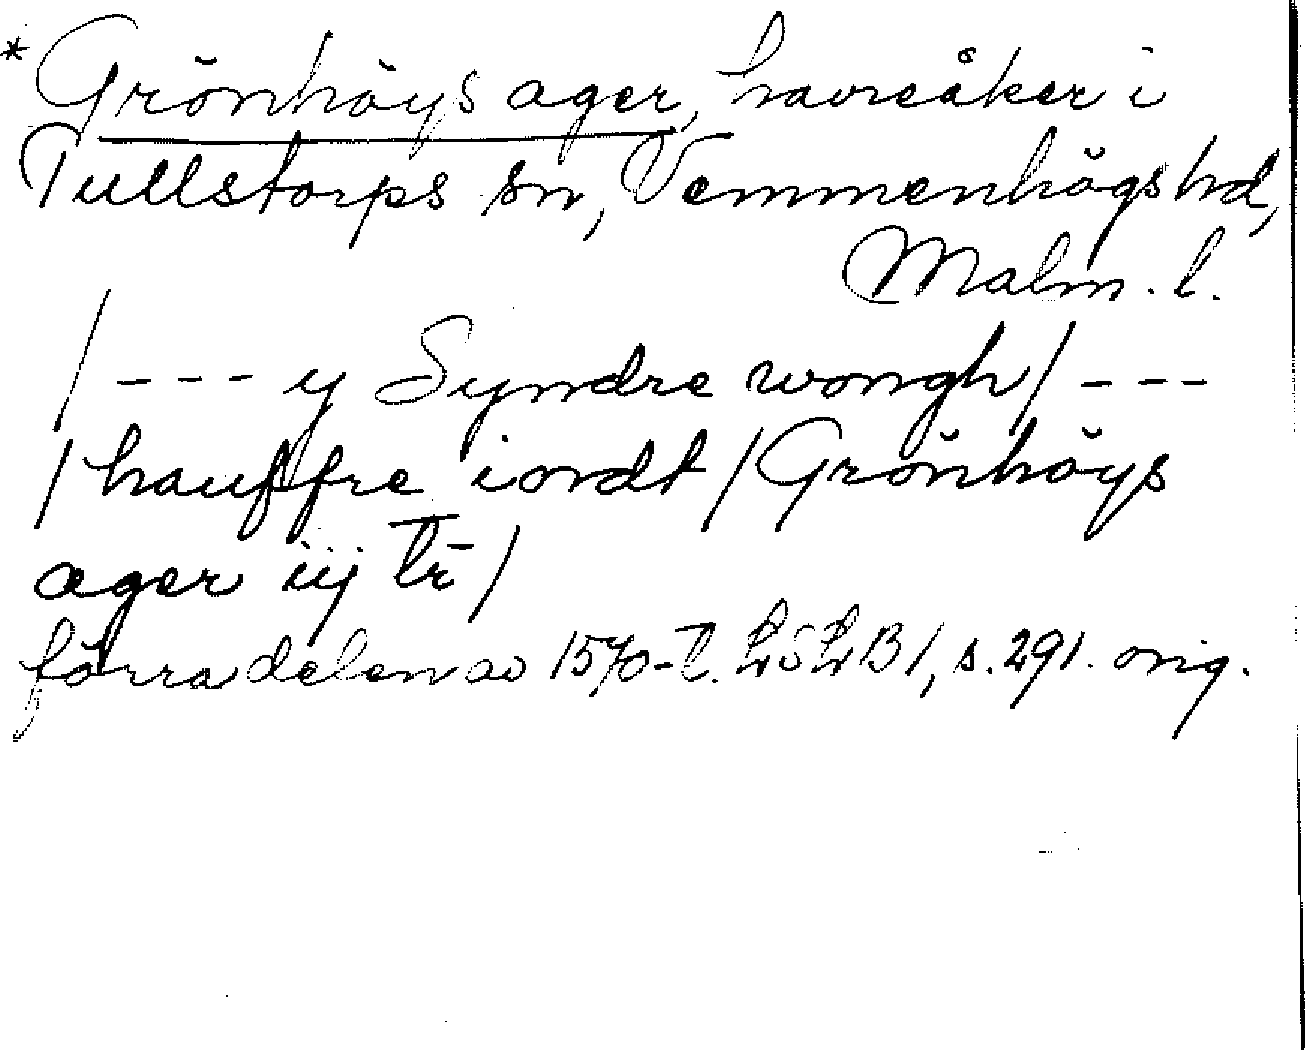 *Grönhöys ager, havreåker i
Tullstorps sn, Vemmenhögs hd,
Malm. l.
/ - - - y Syndre wongh / - - -
/ hauffre iordt / Grönhöys
ager iij tr̄ /
förra delen av 1570-t. LSLB1, s. 291. orig.